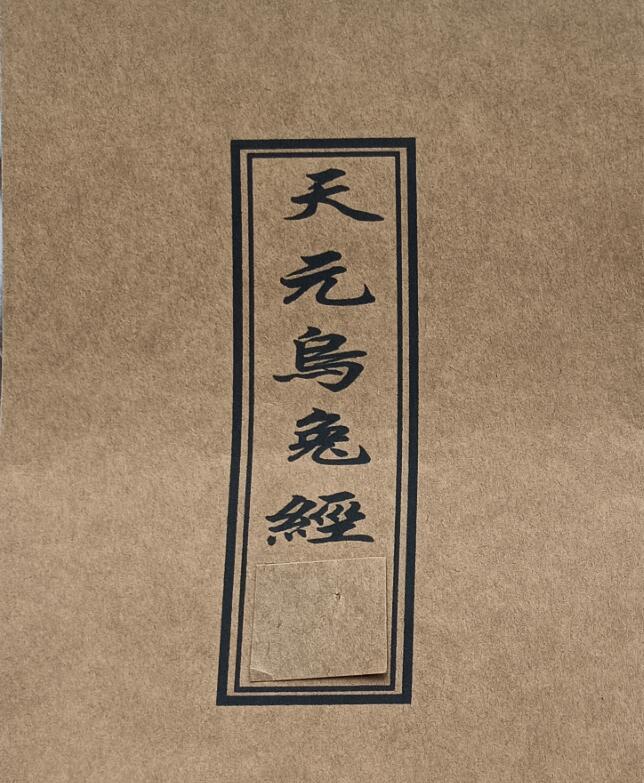 天元烏兔經